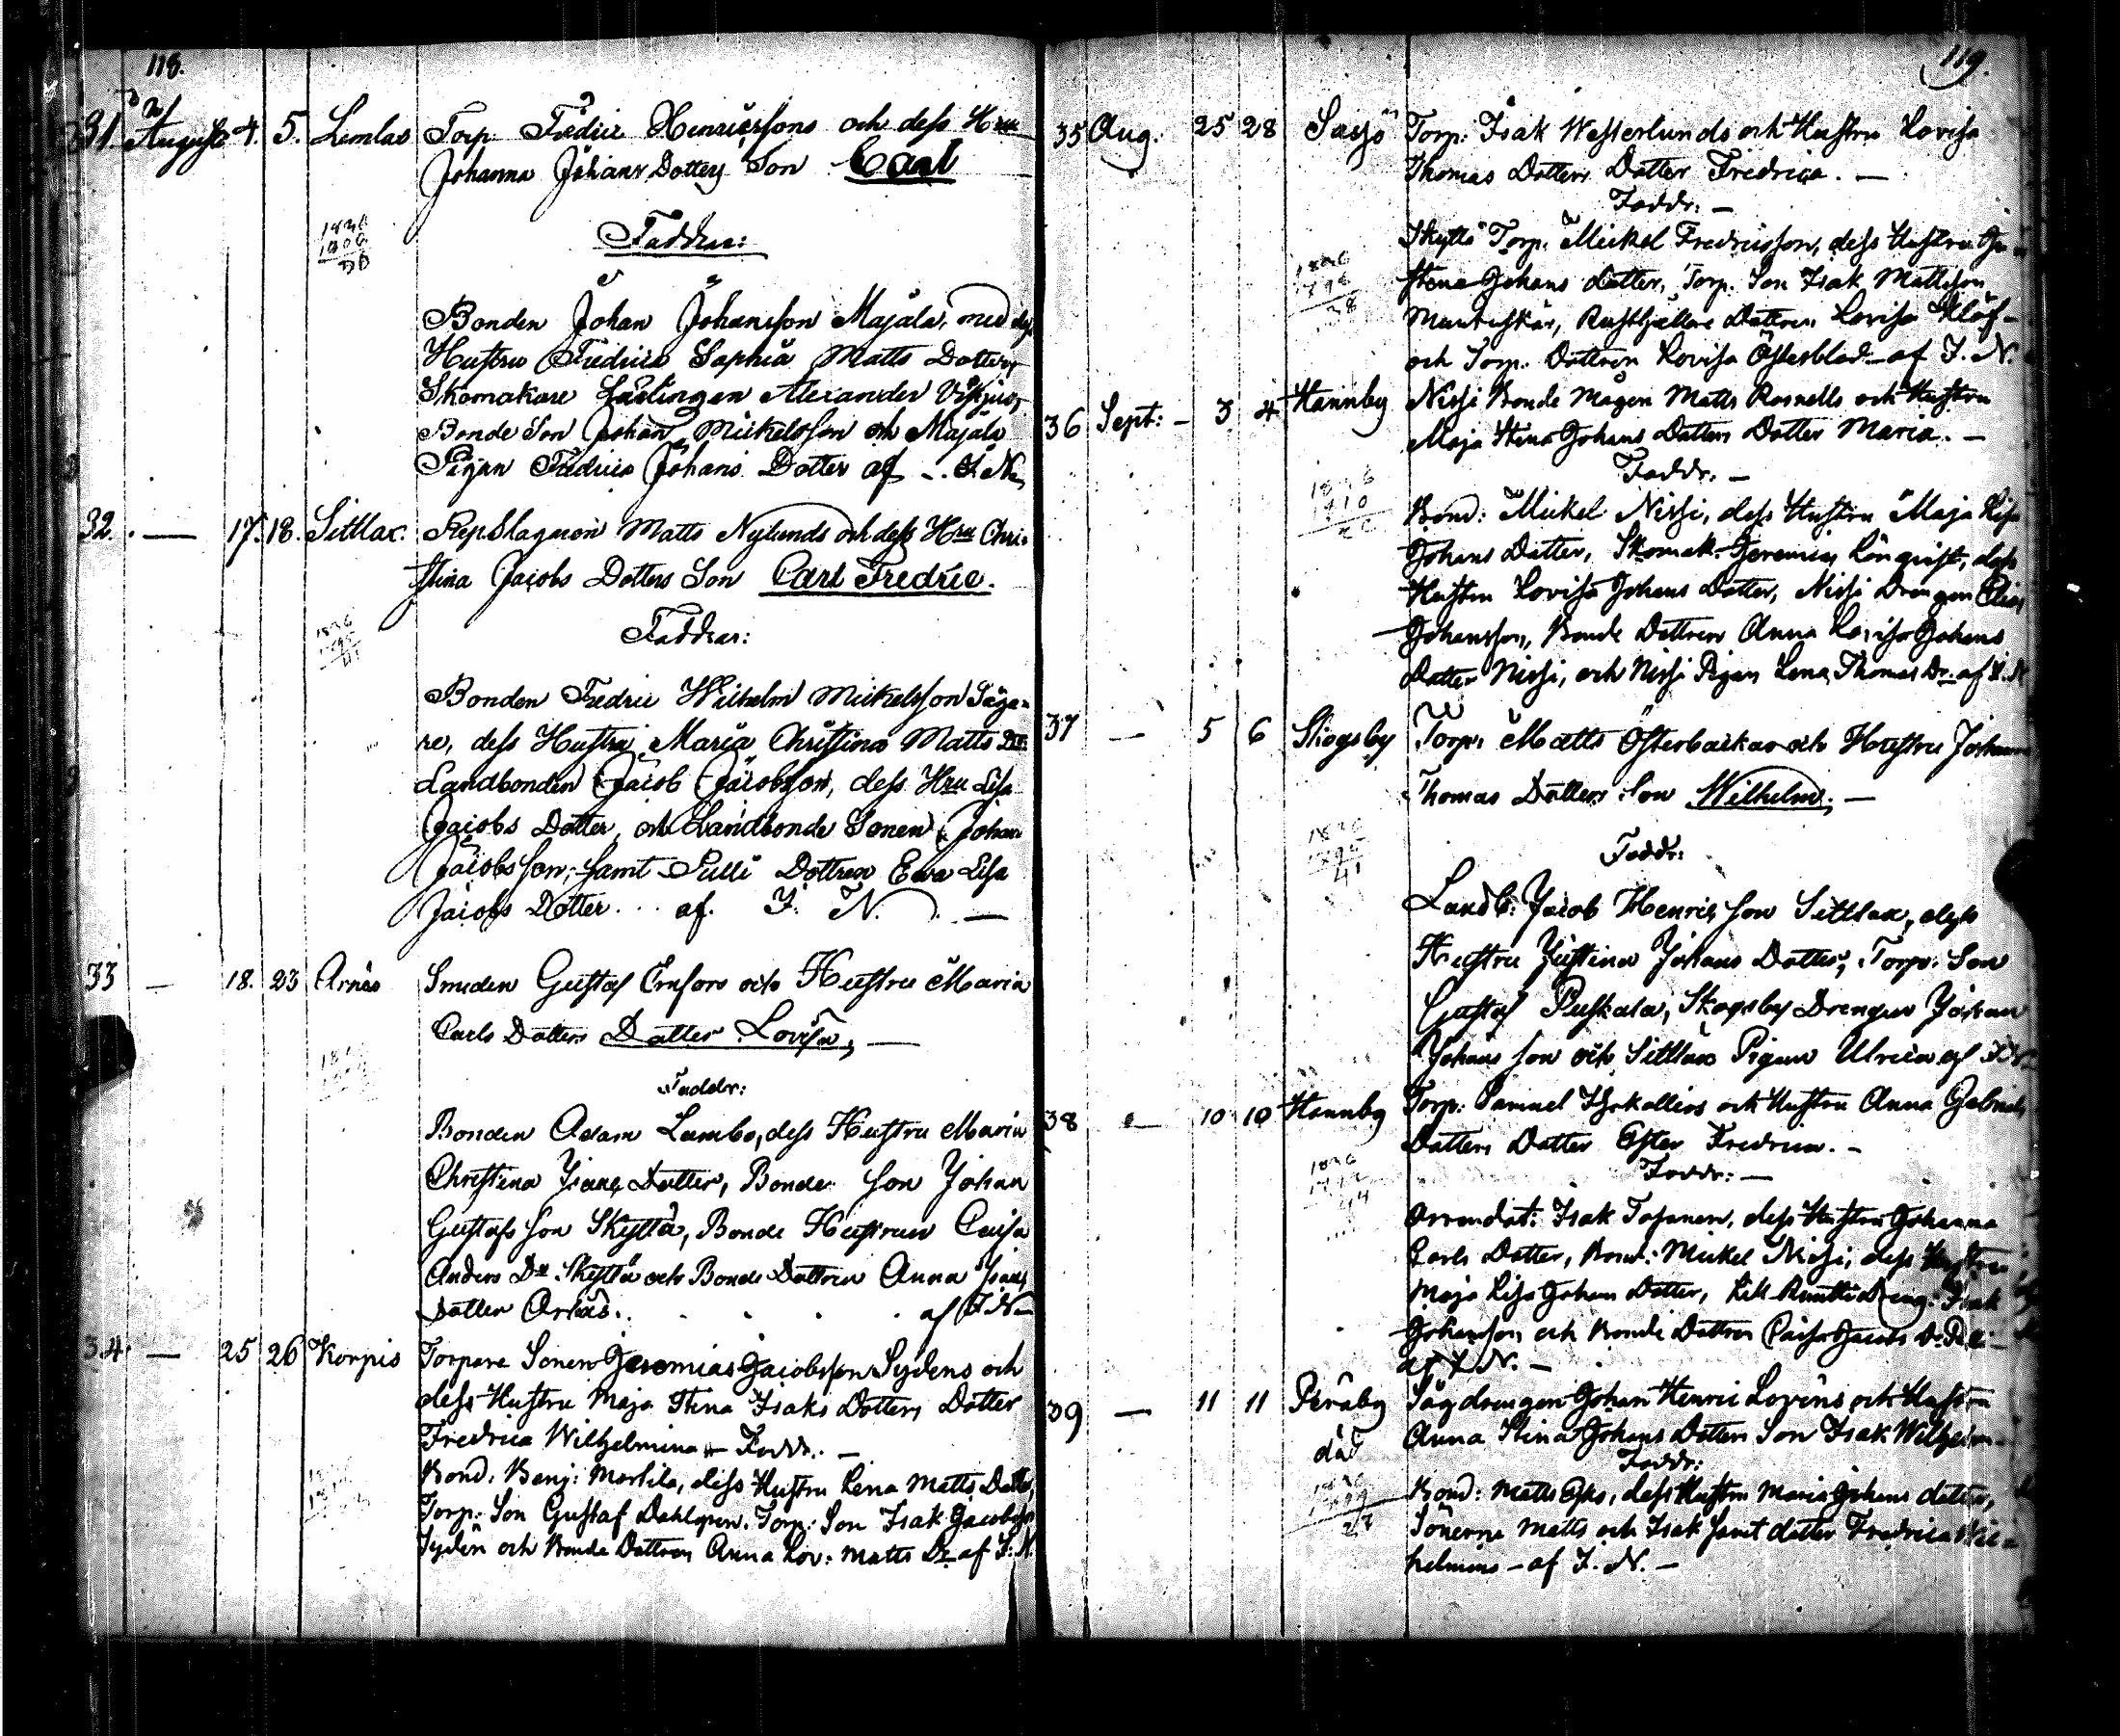 118.
31. Augusti 4. 5. Lemlax Torp Fredric Henricssons och dess Hru
Johanna Johans Dotters Son Carl
1836
1806
30
Faddrar:
Bonden Johan Johansson Majala, med dess
Hustru Fredrica Sophia Matts Dotter,
Skomakare Lärlingen Alexander
Bonde Son Johan Mickelsson och Majala
Pigan Fredrica Johans Dotter af J. N.
32. — 17. 18. Sittlax. Rep.Slagaren Matts Nylunds och dess Hru Chri-
stina Jacobs Dotters Son Carl Fredric.
1836
1795
41
Faddrar:
Bonden Fredric Wilhelm Mickelsson Säga-
re, dess Hustru Maria Christina Matts Dr.
Landbonden Jacob Jacobsson, dess Hru Lisa
Jacobs Dotter, och Landbonde Sonen Johan
Jacobsson, samt Dottren Ewa Lisa
Jacobs Dotter. af. J. N. —
33 — 18. 23 Arnäs Smeden Gustaf Ernfors och Hustru Maria
Carls Dotters Dotter Lovisa, —
Faddr:
Bonden Adam Lambo, dess Hustru Maria
Christina Isaacs Dotter, Bonde Son Johan
Gustafsson Skyttä, Bonde Hustrun Caisa
Anders Dr Skyttä och Bonde Dottren Anna Isaacs
Dotter Arnäs. af J. N.
34. — 25 26 Korpis Torpare Sonen Jeremias Jacobsson Sydens och
dess Hustru Maja Stina Isaks Dotters Dotter
Fredrica Wilhelmina — Faddr. —
Bond. Benj: Martila, dess Hustru Lena Matts Dotter,
Torp. Son Gustaf Dahlgren. Torp: Son Isak Jacobsson
Sydén och Bonde Dottren Anna Lov: Matts Dr. af J. N.
119.
35 Aug. 25 28 Sarsö Torp. Isak Westerlunds och Hustru Lovisa
Thomas Dotters Dotter Fredrica. —
Faddr. —
Skyttä Torp. Mickel Fredricsson, dess Hustru
Stena Johans dotter, Torp. Son Isak Mattsson
Rusthållare Dottren Lovisa Klöf-
och Torp. Dottren Lovisa Österblad — af J. N.
36 Sept: — 3 4 Hannby Nissi Bonde Mågen Matts Rosnells och Hustru
Maja Stena Johans Dotters Dotter Maria. —
Faddr. —
Bond: Mickel Nissi, dess Hustru Maja Lisa
Johans Dotter, Skomak. Jeremias Lönqvist, dess
Hustru Lovisa Johans Dotter, Nissi Drengen Elias
Johansson, Bonde Dottren Anna Lovisa Johans
Dotter Nissi, och Nissi Pigan Lena Thomas Dr. af J. N.
37 — 5 6 Skogsby Torp. Matts Österbackas och Hustru Johanna
Thomas Dotters Son Wilhelm. —
Faddr:
Landb: Jacob Henricsson Sittlax, dess
Hustru Justina Johans Dotter, Torp. Son
Gustaf Puskala, Skogsby Drengen Johan
Johansson och Sittlax Pigan Ulrica af J. N.
38 — 10 10 Hannby Torp. Samuel Isokallios och Hustru Anna Gabriels
Dotters Dotter Ester Fredrica. —
Faddr: —
Arrendat: Isak Tossanen, dess Hustru Johanna
Carls Dotter, Bond: Mickel Nissi, dess Hustru
Maja Lisa Johans Dotter, Dreng: Isak
Johansson och Bonde Dottren Caisa Jacobs Dr.
af J. N. —
39 — 11 11 Peräby Sågdrengen Johan Henric Lovéns och Hustru
Anna Stina Johans Dotters Son Isak Wilhelm
Faddr:
Bond: Matts Esko, dess Hustru Maria Johans dotter,
Sönerne Matts och Isak samt dotter Fredrica Wil-
helmina — af J. N. —